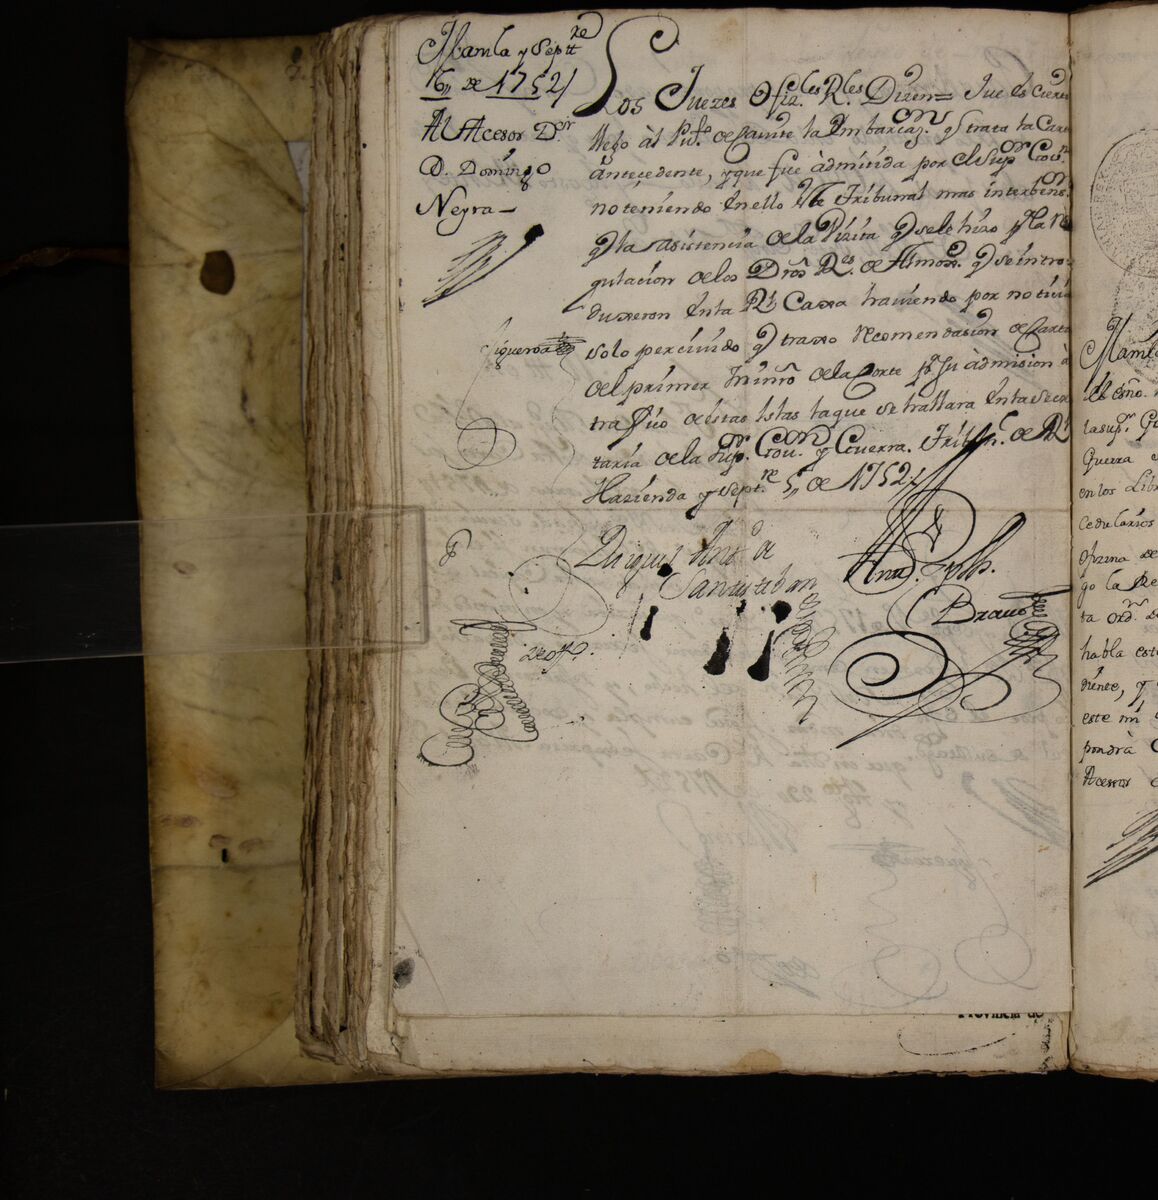 Manila y Septt.re
6,, de 1752,
Al Acesor D.or
D. Domingo
Neyra
Figueroa
Los Juezes Ofiz.les R.les Dizen= Que es cierto
llegò àl Pu.to de Cavite la Embarcaz.on q trata la Carta
àntecedente, y que fue àdmitida por el Sup.or Gov.no
no teniendo en ello este Tribunal mas interbenz.on
q la assistencia de la Vizita q se le hizo y la Re
gulacion de los Dros R.es de Almox.o q se intro
duxeron en la R.l Caxa haviendo por noticia
solo percivido q traxo recomendacion de Carta
del primer Minro de la Corte p.a su àdmision à
trafico de estas Islas la que se hallara en la Secre
taria de la Sup.or Gov.on y Guerra. Tribun.l de R.l
Hazienda y Sept.re 5,, de 1752,
Miguel Ant.o de
Santisteban
And. Jph.
Bravo
Manila
el esno.
la sup.r
Guerra
en los Lib
Cedularios
ofizina de
go la Re
ta ord.n de
habla este
diente, y
este mi
pondrà
Acessor
Provincia de